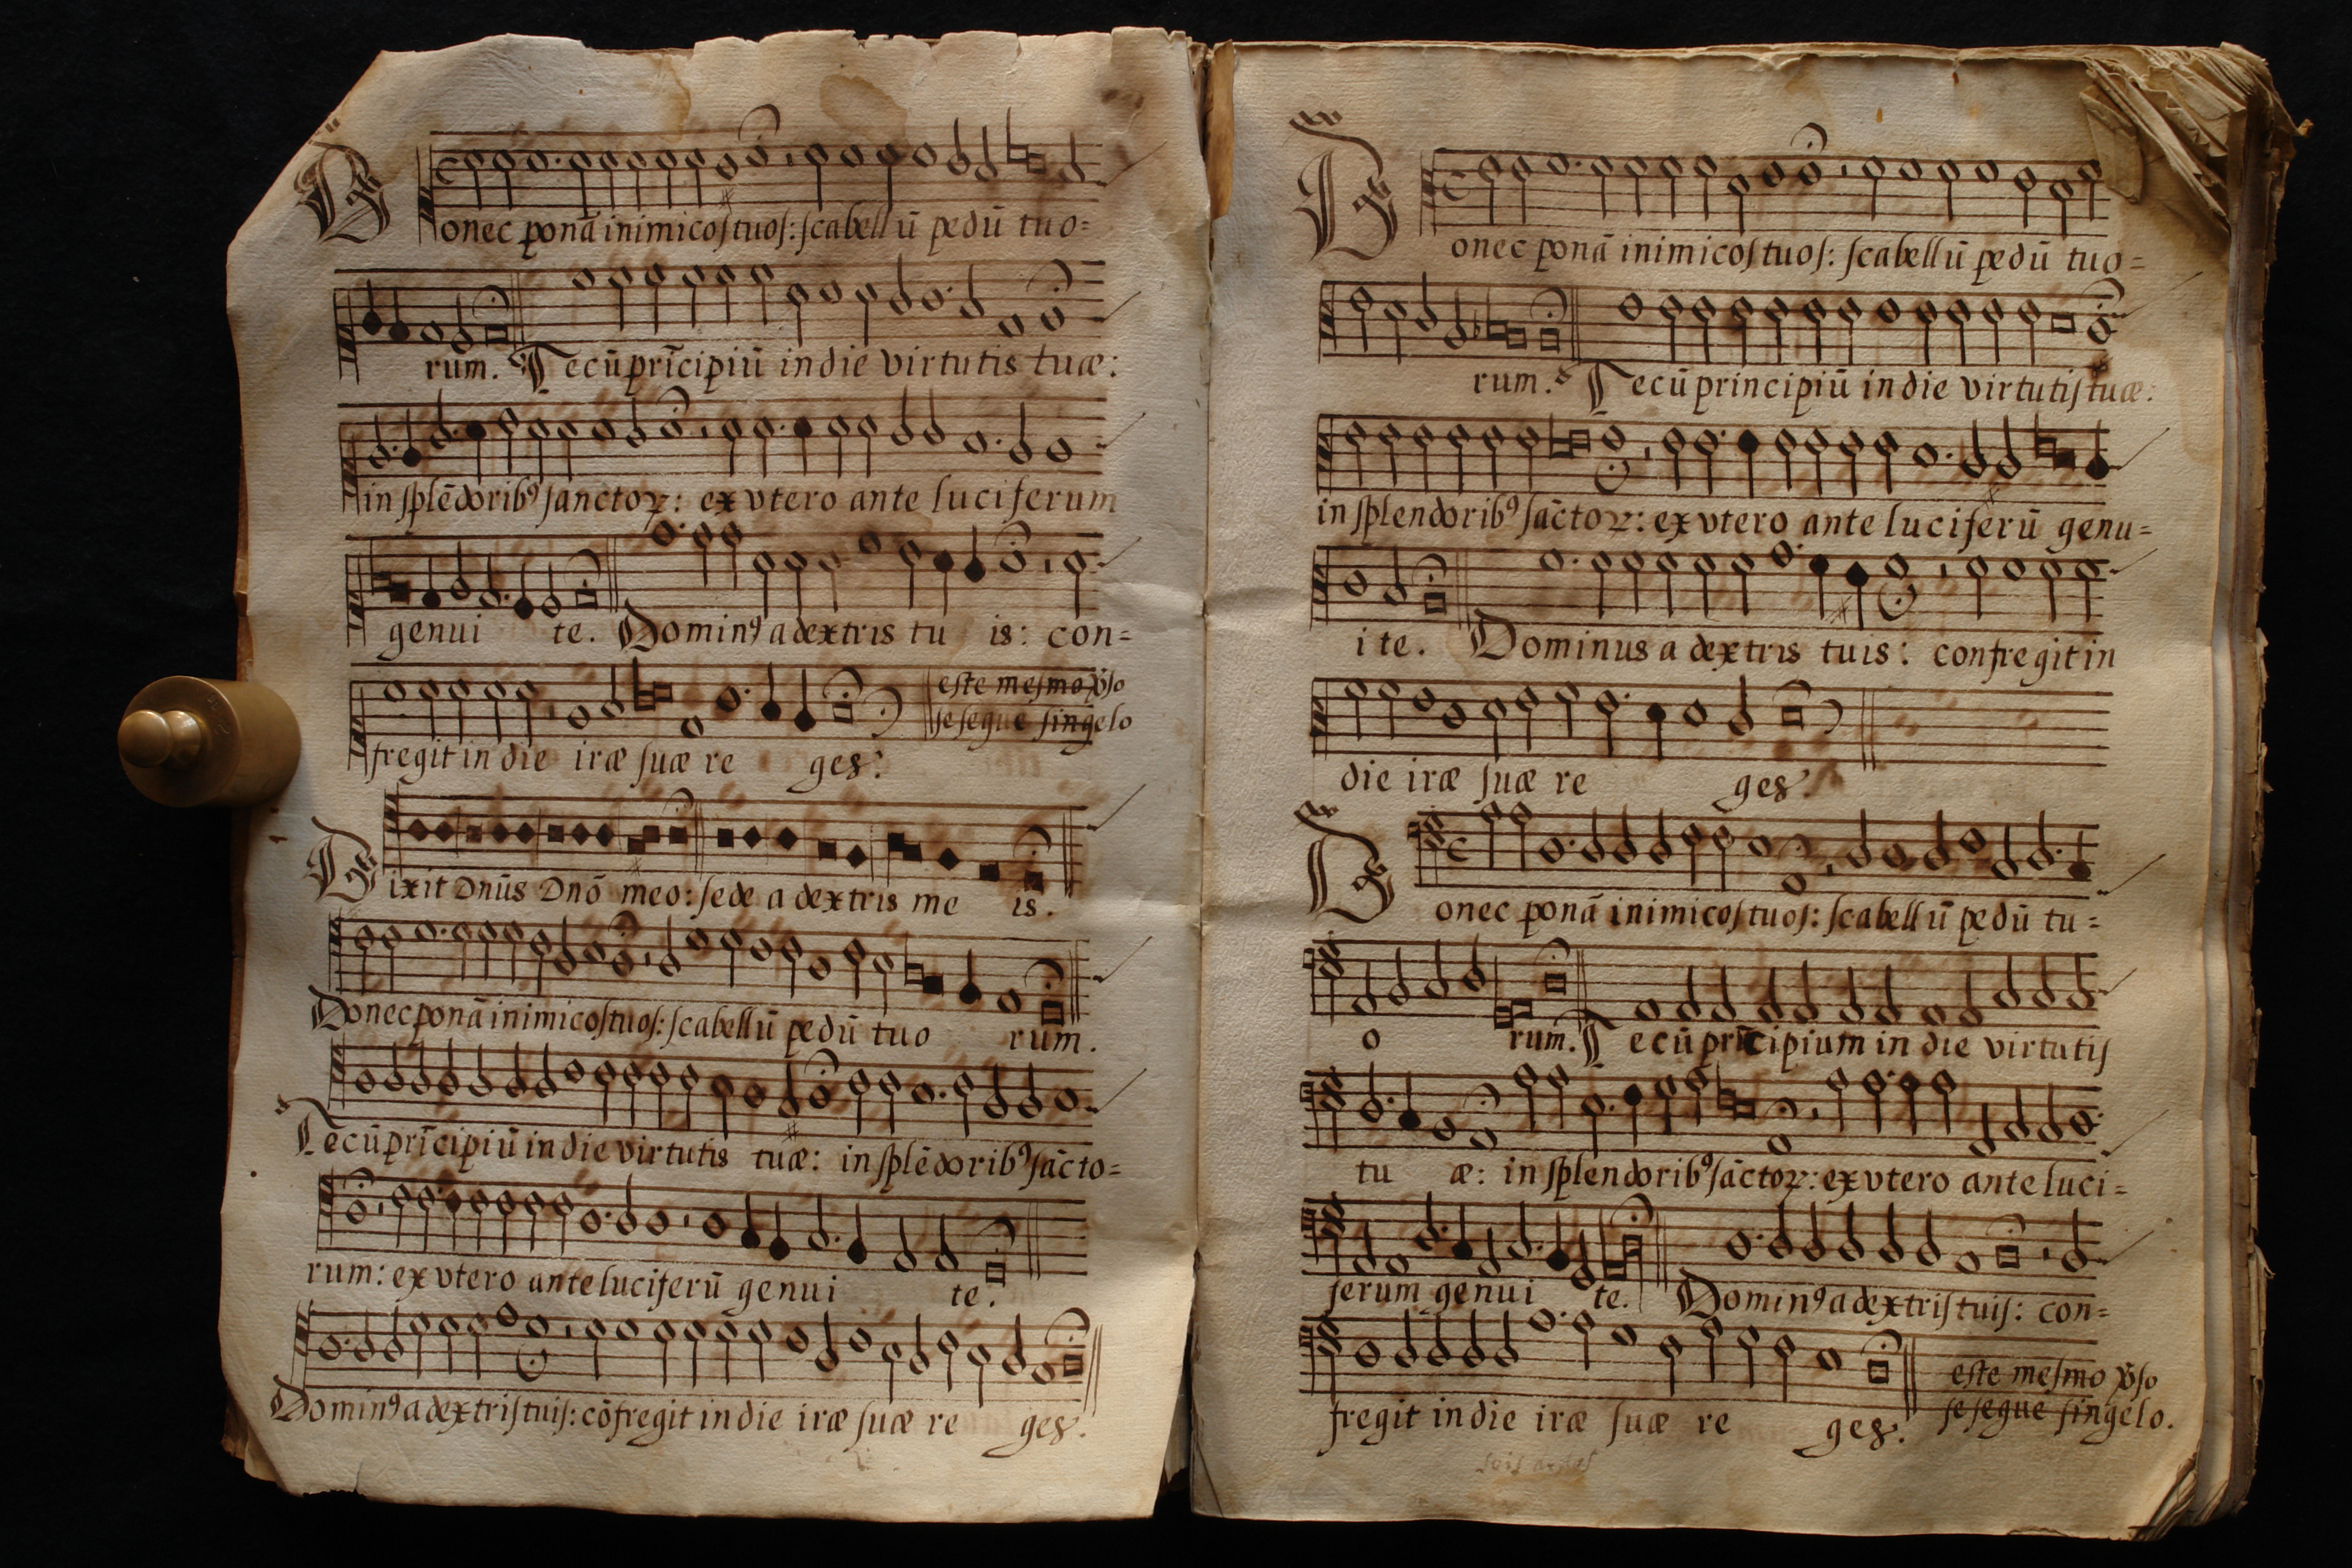 Donec ponã inimicoſ tuoſ: ſcabellũ pedũ tuo=
rum. Tecũ prĩcipiũ in die virtutis tuæ:
in ſplẽdoribꝰ ſanctoꝝ: ex vtero ante luciferum
genui te. Dominꝰ a dextris tu is: con=
este mesmo
fregit in die iræ ſuæ re ges.
ſe ſegue ſingelo
Dixit Dnũs Dnõ meo: ſede a dextris me is.
Donec ponã inimicoſ tuoſ: ſcabellũ pedũ tuo rum.
Tecũ prĩcipiũ in die virtutis tuæ: in ſplẽdoribꝰ ſãcto=
rum: ex vtero ante luciferũ genui te.
Dominꝰ a dextriſ tuiſ: cõfregit in die iræ ſuæ re ges.
Donec ponã inimicoſ tuoſ: ſcabellũ pedũ tuo=
rum. Tecũ principiũ in die virtutiſ tuæ:
in ſplendoribꝰ ſãctoꝝ: ex vtero ante luciferũ genu=
i te. Dominus a dextris tuis: confregit in
die iræ ſuæ re ges.
Donec ponã inimicoſ tuoſ: ſcabellũ pedũ tu=
o rum. Tecũ prĩcipium in die virtutiſ
tu æ: in ſplendoribꝰ ſãctoꝝ: ex vtero ante luci=
ferum genui te. Dominꝰ a dextriſ tuiſ: con=
fregit in die iræ ſuæ re ges.
eſte meſmo
ſe ſegue ſingelo.